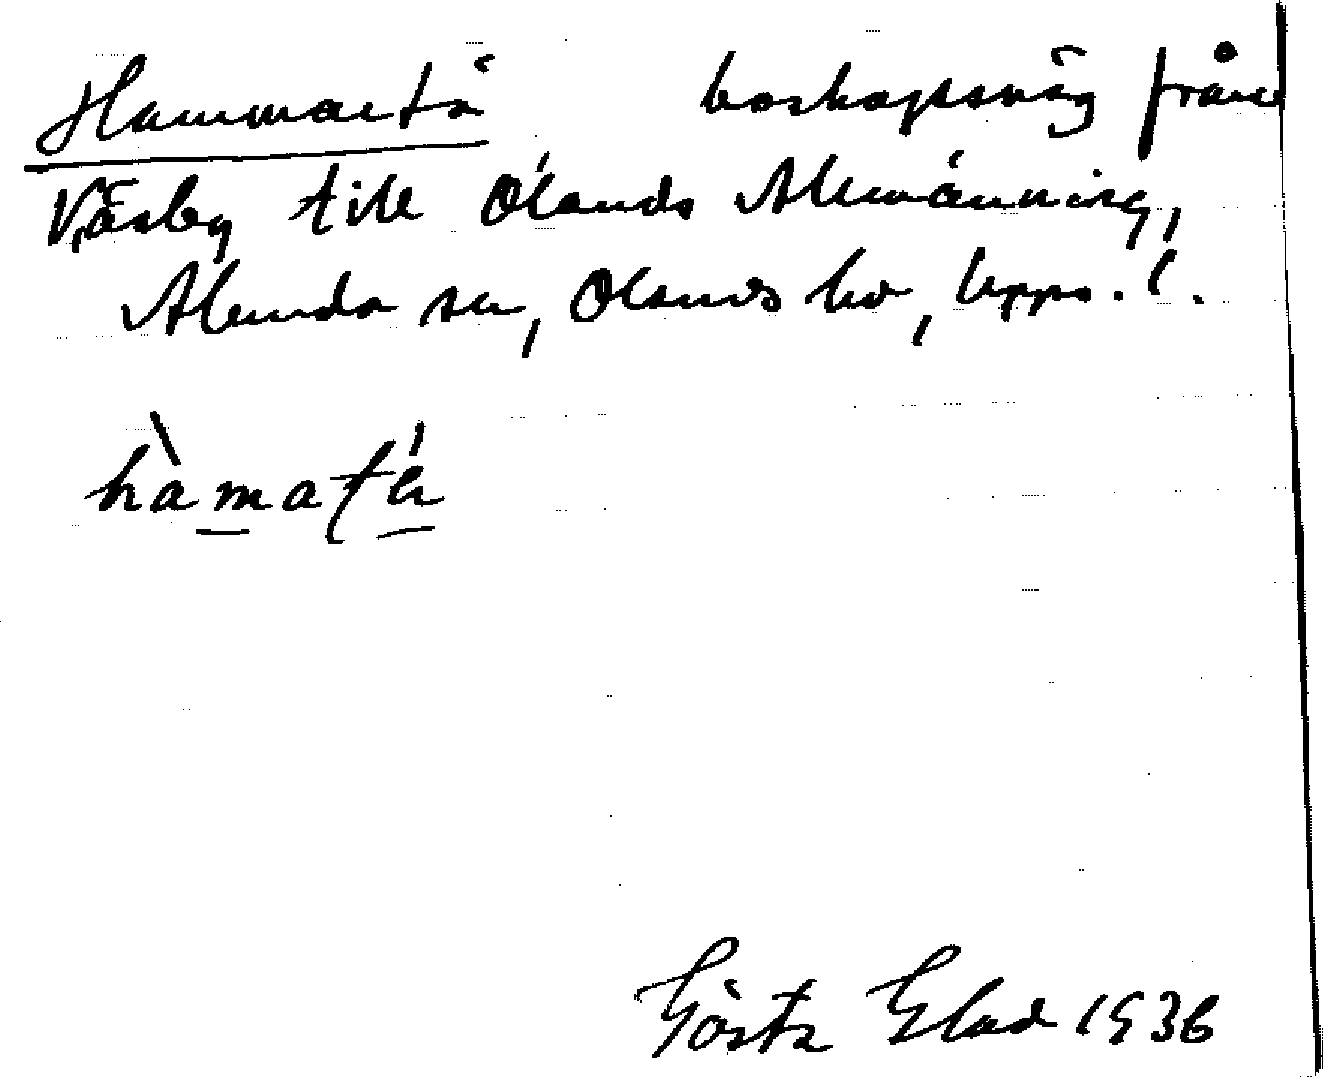 Hammartå boskapsväg från
Väsby till Ölands Allmänning,
Alunda sn, Olands hd, Upps. l.
hàmatá
Gösta Elad 1936